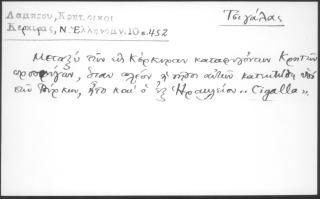 Λαμπρου, Κρητ. οικοι
Κερκυρας, Ν. Ἑλληνομν. 10 σ. 452
Τσιγάλας
Μεταξὺ τῶν εἰς Κέρκυραν καταφυγόντων Κρητῶν
προσφύγων, ὅταν πλέον ἡ νῆσος αὐτῶν κατεκτήθη ὑπὸ
τῶν Τούρκων, ἦτο καὶ ὁ ἐξ Ἡρακλείου "Cigalla".